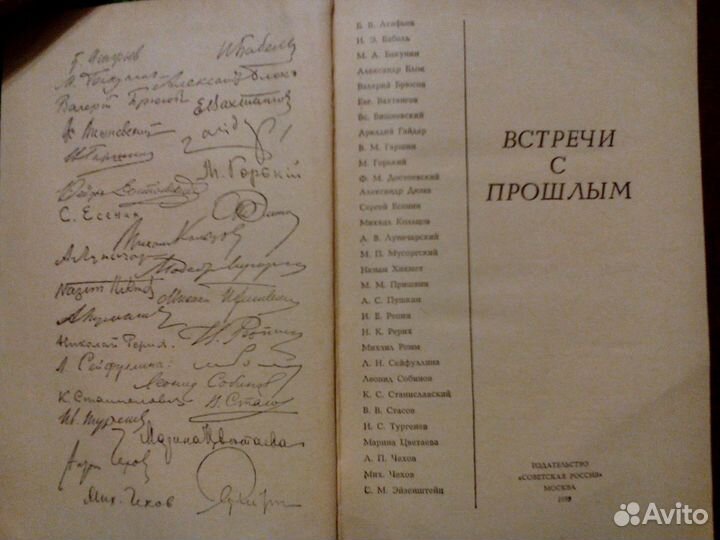 Б. Асафьев
И. Бабель
М. Бакунин
Александр Блок
Валерий Брюсов
Е. Вахтангов
В. Гаршин
М. Горький
С. Есенин
Михаил Кольцов
А. Луначар
Nazim Hikmet
Николай Рерих
Л. Сейфуллина
Леонид Собинов
К. Станиславский
В. Стасов
Ив. Тургенев
Марина Цветаева
Антон Чехов
Мих. Чехов
Б. В. Асафьев
И. Э. Бабель
М. А. Бакунин
Александр Блок
Валерий Брюсов
Евг. Вахтангов
Вс. Вишневский
Аркадий Гайдар
В. М. Гаршин
М. Горький
Ф. М. Достоевский
Александр Дюма
Сергей Есенин
Михаил Кольцов
А. В. Луначарский
М. П. Мусоргский
Назым Хикмет
М. М. Пришвин
А. С. Пушкин
И. Е. Репин
Н. К. Рерих
Михаил Ромм
Л. Н. Сейфуллина
Леонид Собинов
К. С. Станиславский
В. В. Стасов
И. С. Тургенев
Марина Цветаева
А. П. Чехов
Мих. Чехов
С. М. Эйзенштейн
ВСТРЕЧИ
С
ПРОШЛЫМ
ИЗДАТЕЛЬСТВО
«СОВЕТСКАЯ РОССИЯ»
МОСКВА
Avito